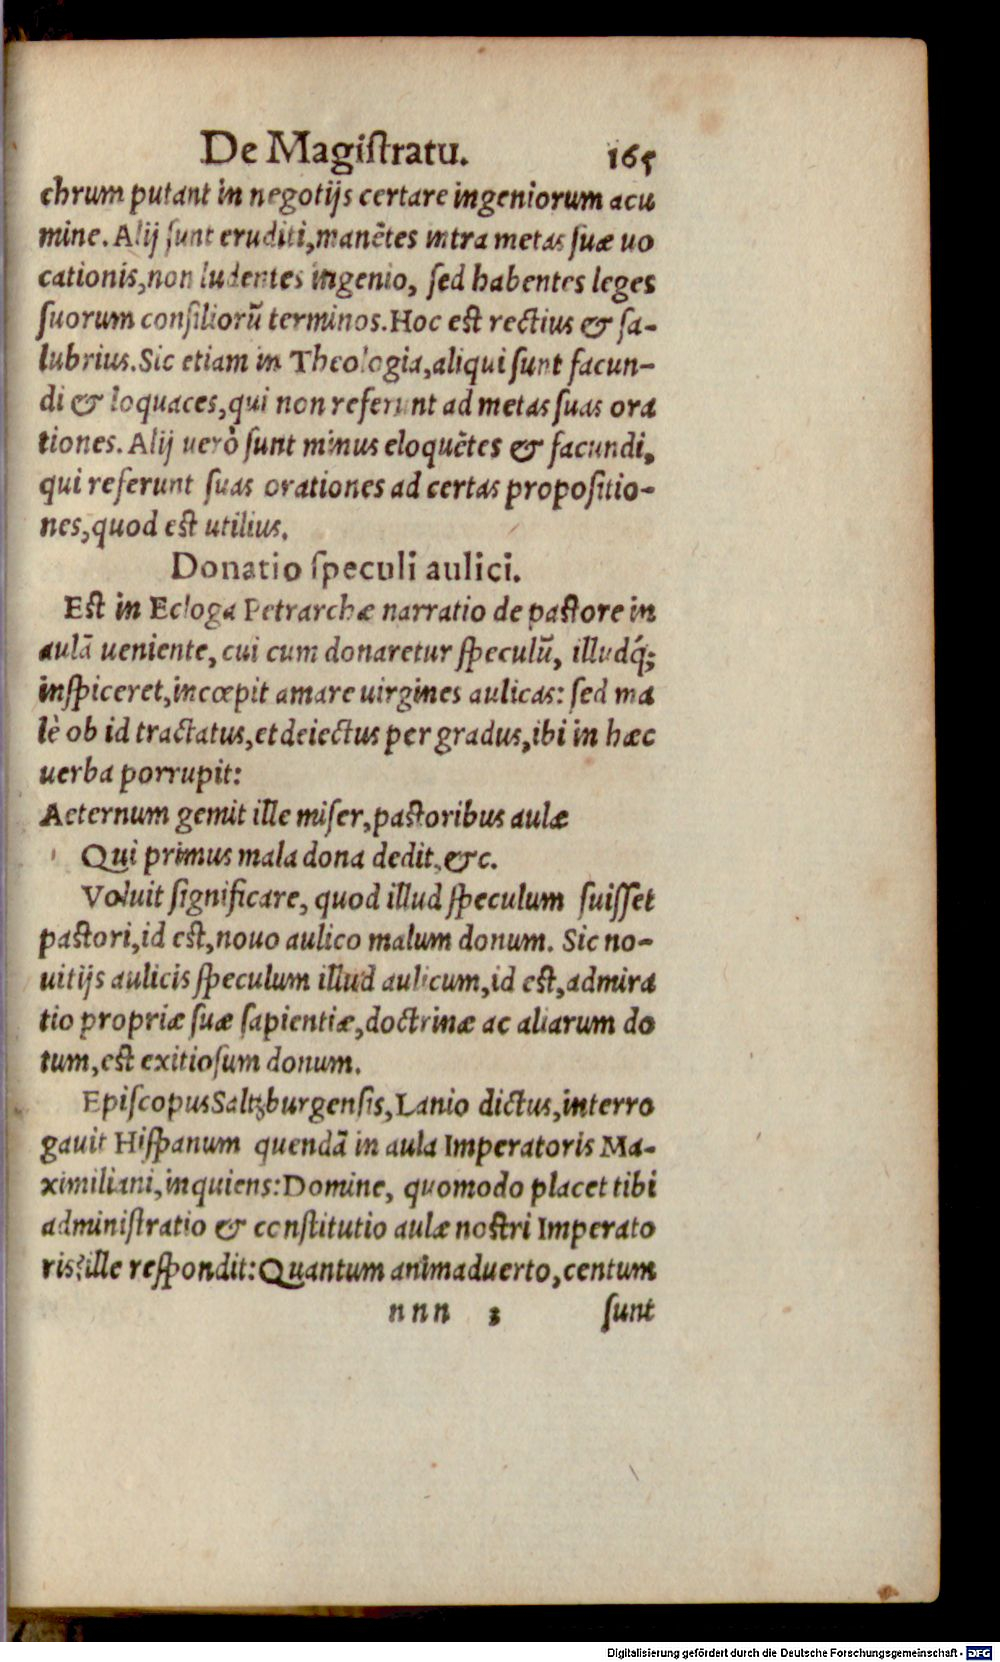 De Magiſtratu. 165
chrum putant in negotijs certare ingeniorum acu
mine. Alij ſunt eruditi, manẽtes intra metas ſuæ uo
cationis, non ludentes ingenio, ſed habentes leges
ſuorum conſiliorũ terminos. Hoc est rectius & ſa-
lubrius. Sic etiam in Theologia, aliqui ſunt facun-
di & loquaces, qui non referunt ad metas ſuas ora
tiones. Alij uerò ſunt minus eloquẽtes & facundi,
qui referunt ſuas orationes ad certas propoſitio-
nes, quod est utilius.
Donatio ſpeculi aulici.
Est in Ecloga Petrarchæ narratio de pastore in
aulã ueniente, cui cum donaretur ſpeculũ, illudq́;
inſpiceret, incœpit amare uirgines aulicas: ſed ma
lè ob id tractatus, et deiectus per gradus, ibi in hæc
uerba porrupit:
Aeternum gemit ille miſer, pastoribus aulæ
Qui primus mala dona dedit, &c.
Voluit ſignificare, quod illud ſpeculum fuiſſet
pastori, id est, nouo aulico malum donum. Sic no-
uitijs aulicis ſpeculum illud aulicum, id est, admira
tio propriæ ſuæ ſapientiæ, doctrinæ ac aliarum do
tum, est exitioſum donum.
Epiſcopus Saltzburgenſis, Lanio dictus, interro
gauit Hiſpanum quendã in aula Imperatoris Ma-
ximiliani, inquiens: Domine, quomodo placet tibi
adminiſtratio & conſtitutio aulæ nostri Imperato
ris? ille reſpondit: Quantum animaduerto, centum
nnn 3 ſunt
Digitalisierung gefördert durch die Deutsche Forschungsgemeinschaft - DFG